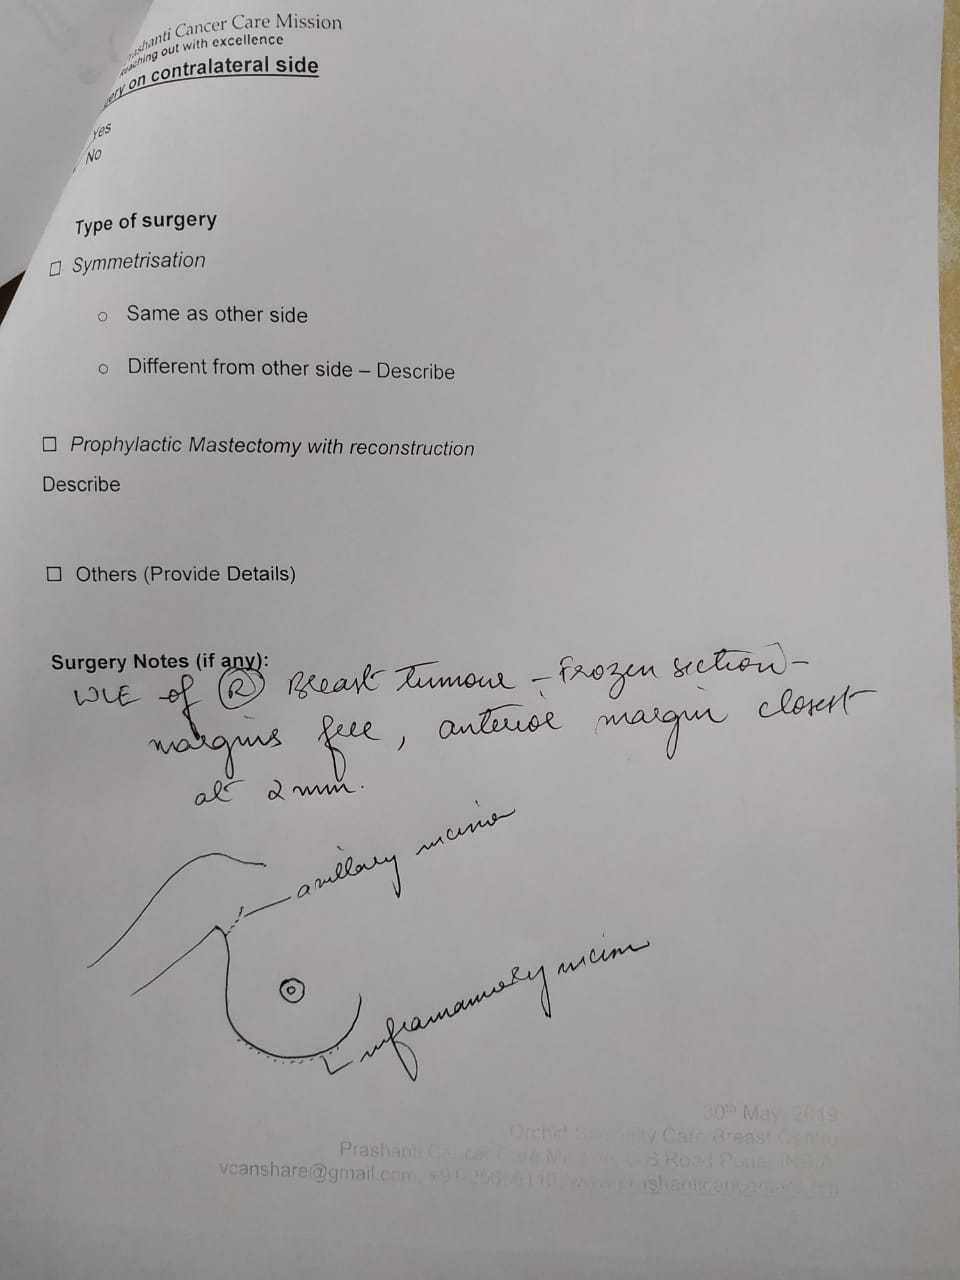 Prashanti Cancer Care Mission
Reaching out with excellence
on contralateral side
Yes
No
Type of surgery
☐ Symmetrisation
o Same as other side
o Different from other side – Describe
☐ Prophylactic Mastectomy with reconstruction
Describe
☐ Others (Provide Details)
Surgery Notes (if any):
WLE of Ⓡ Breast tumour – Frozen section –
margins free, anterior margin closest
at 2 mm.
axillary incision
inframammary incision
30th May, 2019
Orchid Care Breast Centre
Prashanti Cancer Care Mission, Road Pune, INDIA
vcanshare@gmail.com, www.prashanticancercare.org